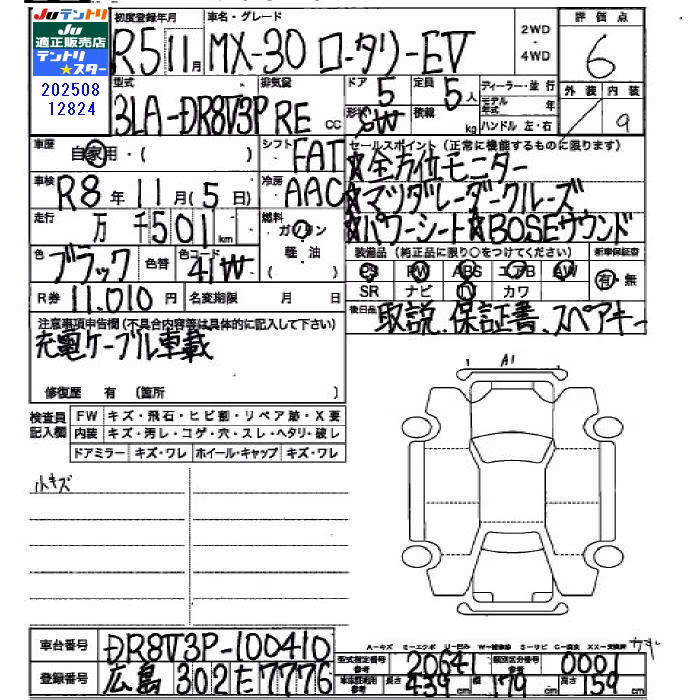 JUテントリ
JU
適正販売店
テントリ
★スター
202508
12824
初度登録年月
R5 11月
車名・グレード
MX-30 ロータリーEV
2WD
・
4WD
評価点
6
外装 内装
9
型式
3LA-DR8V3P
排気量
RE CC
ドア
5
定員
5人
形状
SW
積載
kg
ディーラー・並行
モデル年式 年
ハンドル 左・右
車歴
自家用・( )
シフト
FAT
セールスポイント(正常に機能するものに限ります)
☆全方位モニター
☆マツダレーダークルーズ
☆パワーシート☆BOSEサウンド
車検
R8年11月(5日)
冷房
AAC
走行
万 千501km
燃料
ガソリン
軽・油
( )
色
ブラック
色替
色コード
41W
装備品(純正品に限り○をつけてください)
PS PW ABS エアB AW
SR ナビ TV カワ
新車保証書
有・無
R券 11,010円
名変期限 月 日
後日品
取説、保証書、スペアキー
注意事項申告欄(不具合内容等は具体的に記入して下さい)
充電ケーブル車載
修復歴 有 〔箇所 〕
検査員記入欄
FW キズ・飛石・ヒビ割・リペア跡・X要
内装 キズ・汚レ・コゲ・穴・スレ・ヘタリ・破レ
ドアミラー キズ・ワレ ホイール・キャップ キズ・ワレ
小キズ
A1
車台番号
DR8V3P-100410
登録番号
広島 302 た 7776
A-キズ E-エクボ U-凹み W-補修跡 S-サビ C-腐食 XX-交換済
型式指定番号
参考
20641
類別区分番号
参考
0001
車庫証明用
参考
長さ 439cm 幅 179cm 高さ 159cm